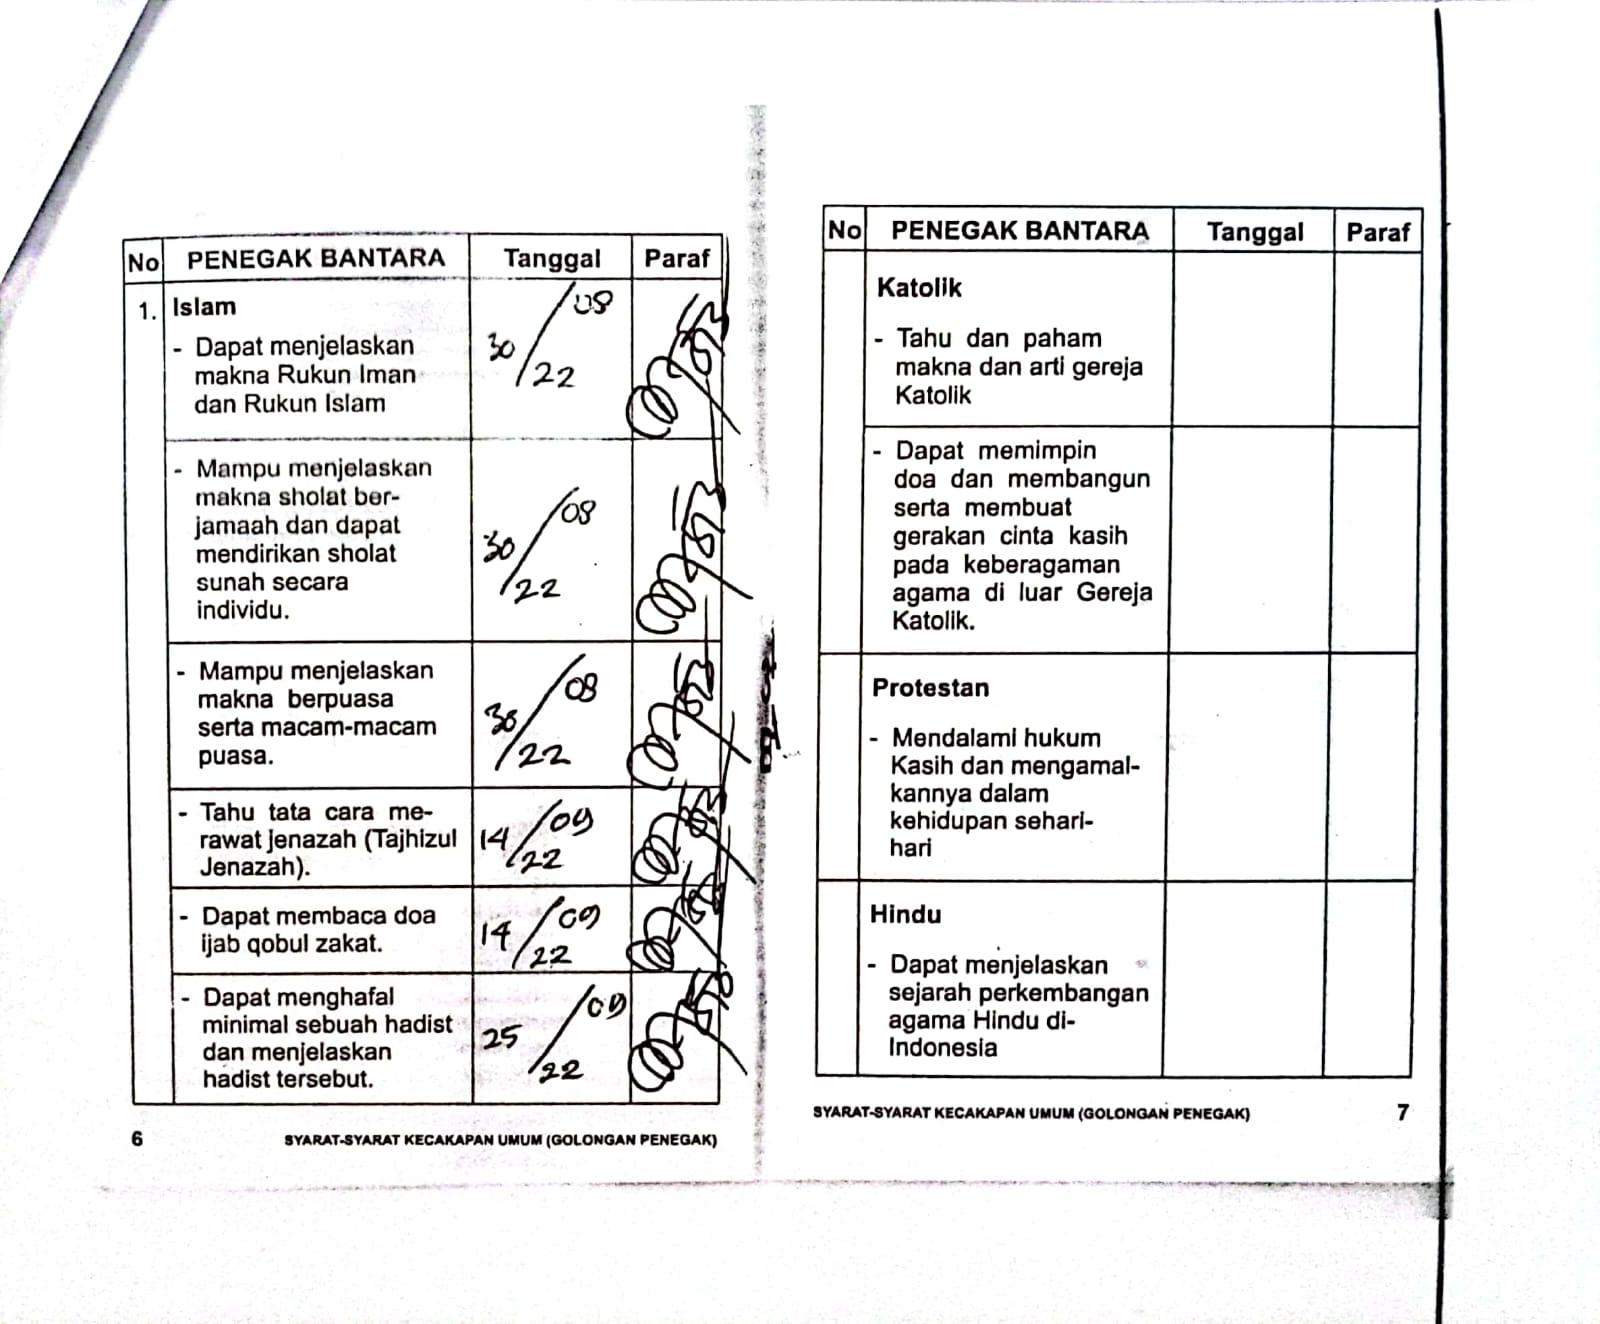 No PENEGAK BANTARA Tanggal Paraf
1. Islam
- Dapat menjelaskan
makna Rukun Iman
dan Rukun Islam
30/08/22
- Mampu menjelaskan
makna sholat ber-
jamaah dan dapat
mendirikan sholat
sunah secara
individu.
30/08/22
- Mampu menjelaskan
makna berpuasa
serta macam-macam
puasa.
30/08/22
- Tahu tata cara me-
rawat jenazah (Tajhizul
Jenazah).
14/09/22
- Dapat membaca doa
ijab qobul zakat.
14/09/22
- Dapat menghafal
minimal sebuah hadist
dan menjelaskan
hadist tersebut.
25/09/22
6 SYARAT-SYARAT KECAKAPAN UMUM (GOLONGAN PENEGAK)
No PENEGAK BANTARA Tanggal Paraf
Katolik
- Tahu dan paham
makna dan arti gereja
Katolik
- Dapat memimpin
doa dan membangun
serta membuat
gerakan cinta kasih
pada keberagaman
agama di luar Gereja
Katolik.
Protestan
- Mendalami hukum
Kasih dan mengamal-
kannya dalam
kehidupan sehari-
hari
Hindu
- Dapat menjelaskan
sejarah perkembangan
agama Hindu di-
Indonesia
SYARAT-SYARAT KECAKAPAN UMUM (GOLONGAN PENEGAK) 7